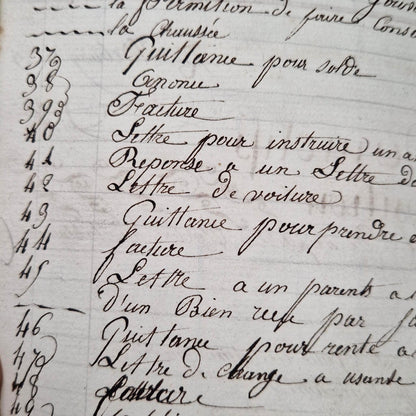 la permition de faire Cons
la Chaussée
37 Quittance pour solde
38 Anonce
39 Facture
40 Lettre pour instruire un a
41 Reponse a un Lettre de
42 Lettre de voiture
43 Quittance pour prendre
44 facture
45 Lettre a un parent a
d'un Bien reçu par
46 Quittance pour rente a
47 Lettre de change a usante
48 facture
49